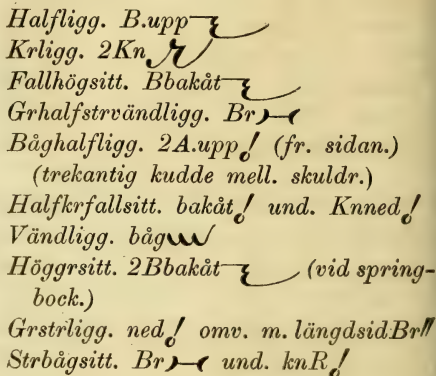 Halfligg. B.upp
Krligg. 2Kn
Fallhögsitt. Bbakåt
Grhalfstrvändligg. Br
Båghalfligg. 2A.upp (fr. sidan.)
(trekantig kudde mell. skuldr.)
Halfkrfallsitt. bakåt und. Knned
Vändligg. båg
Höggrsitt. 2Bbakåt (vid spring-
bock.)
Grstrligg. ned omv. m. längdsidBr"
Strbågsitt. Br und. knR